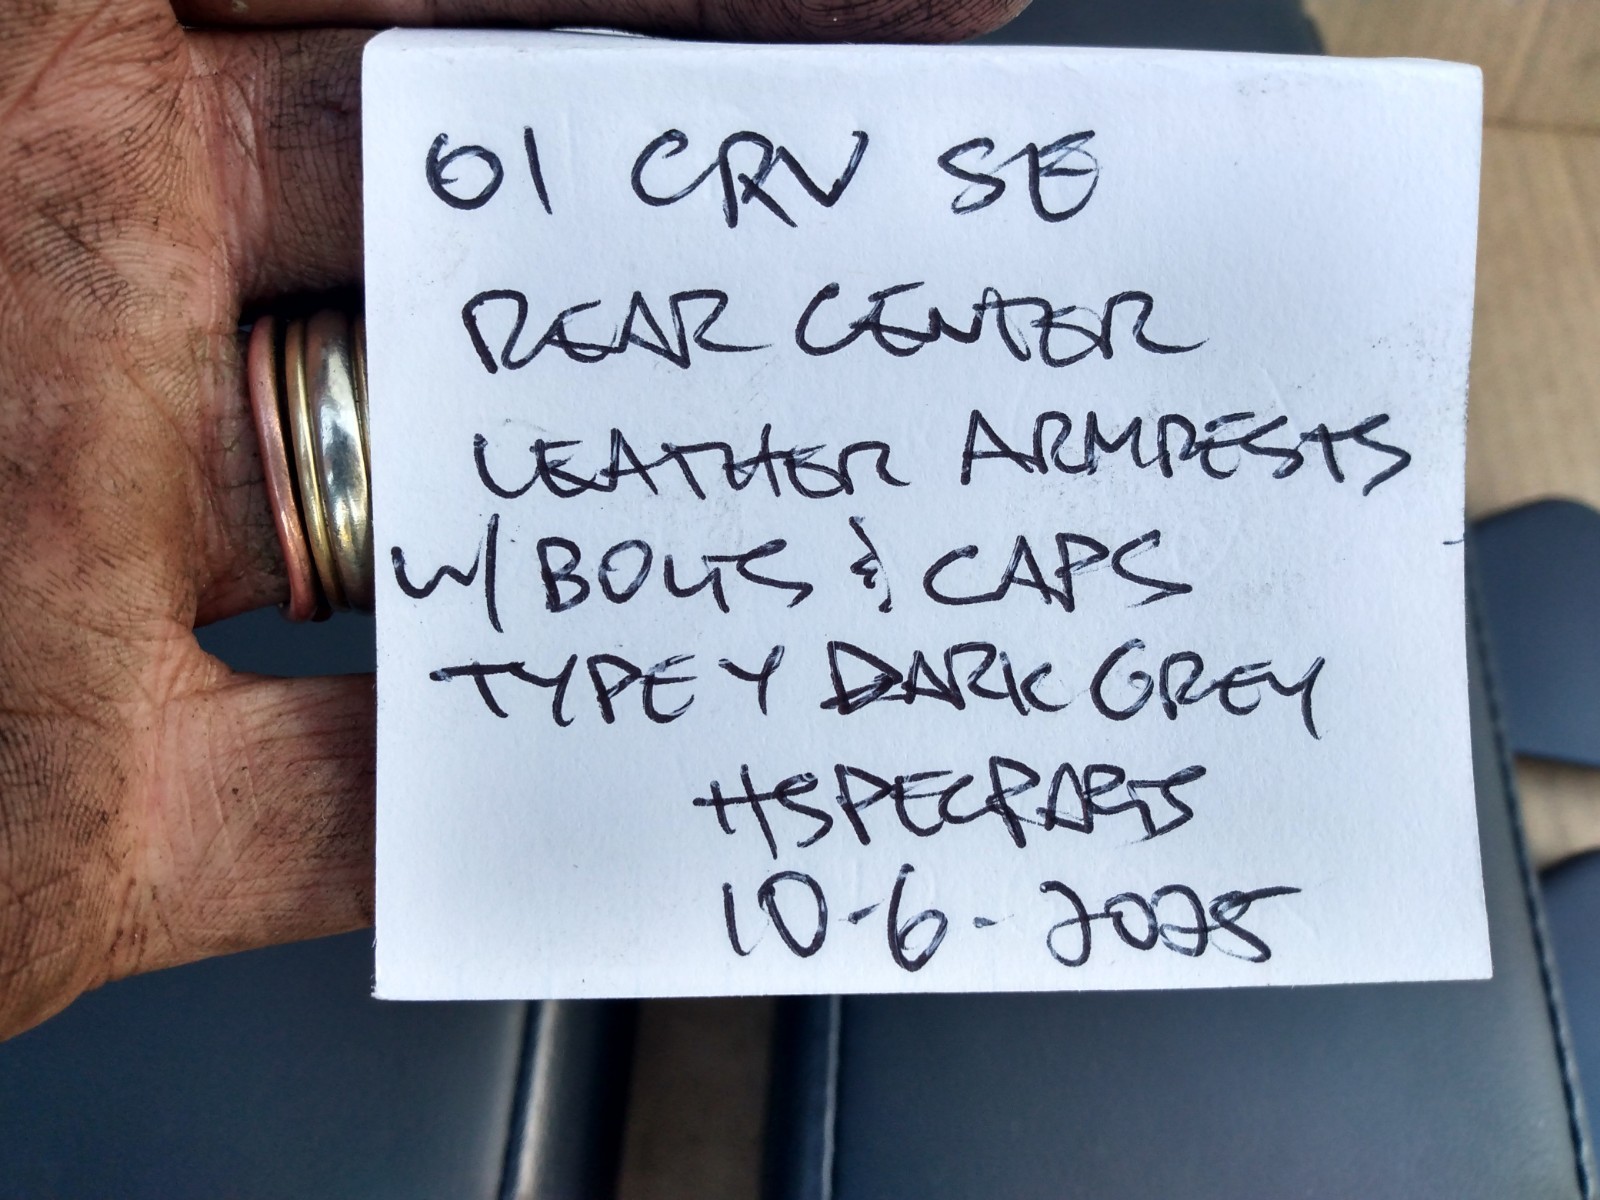 01 CRV SE
REAR CENTER
LEATHER ARMRESTS
W/ BOLTS & CAPS
TYPE Y DARK GREY
HSPECPARTS
10-6-2025